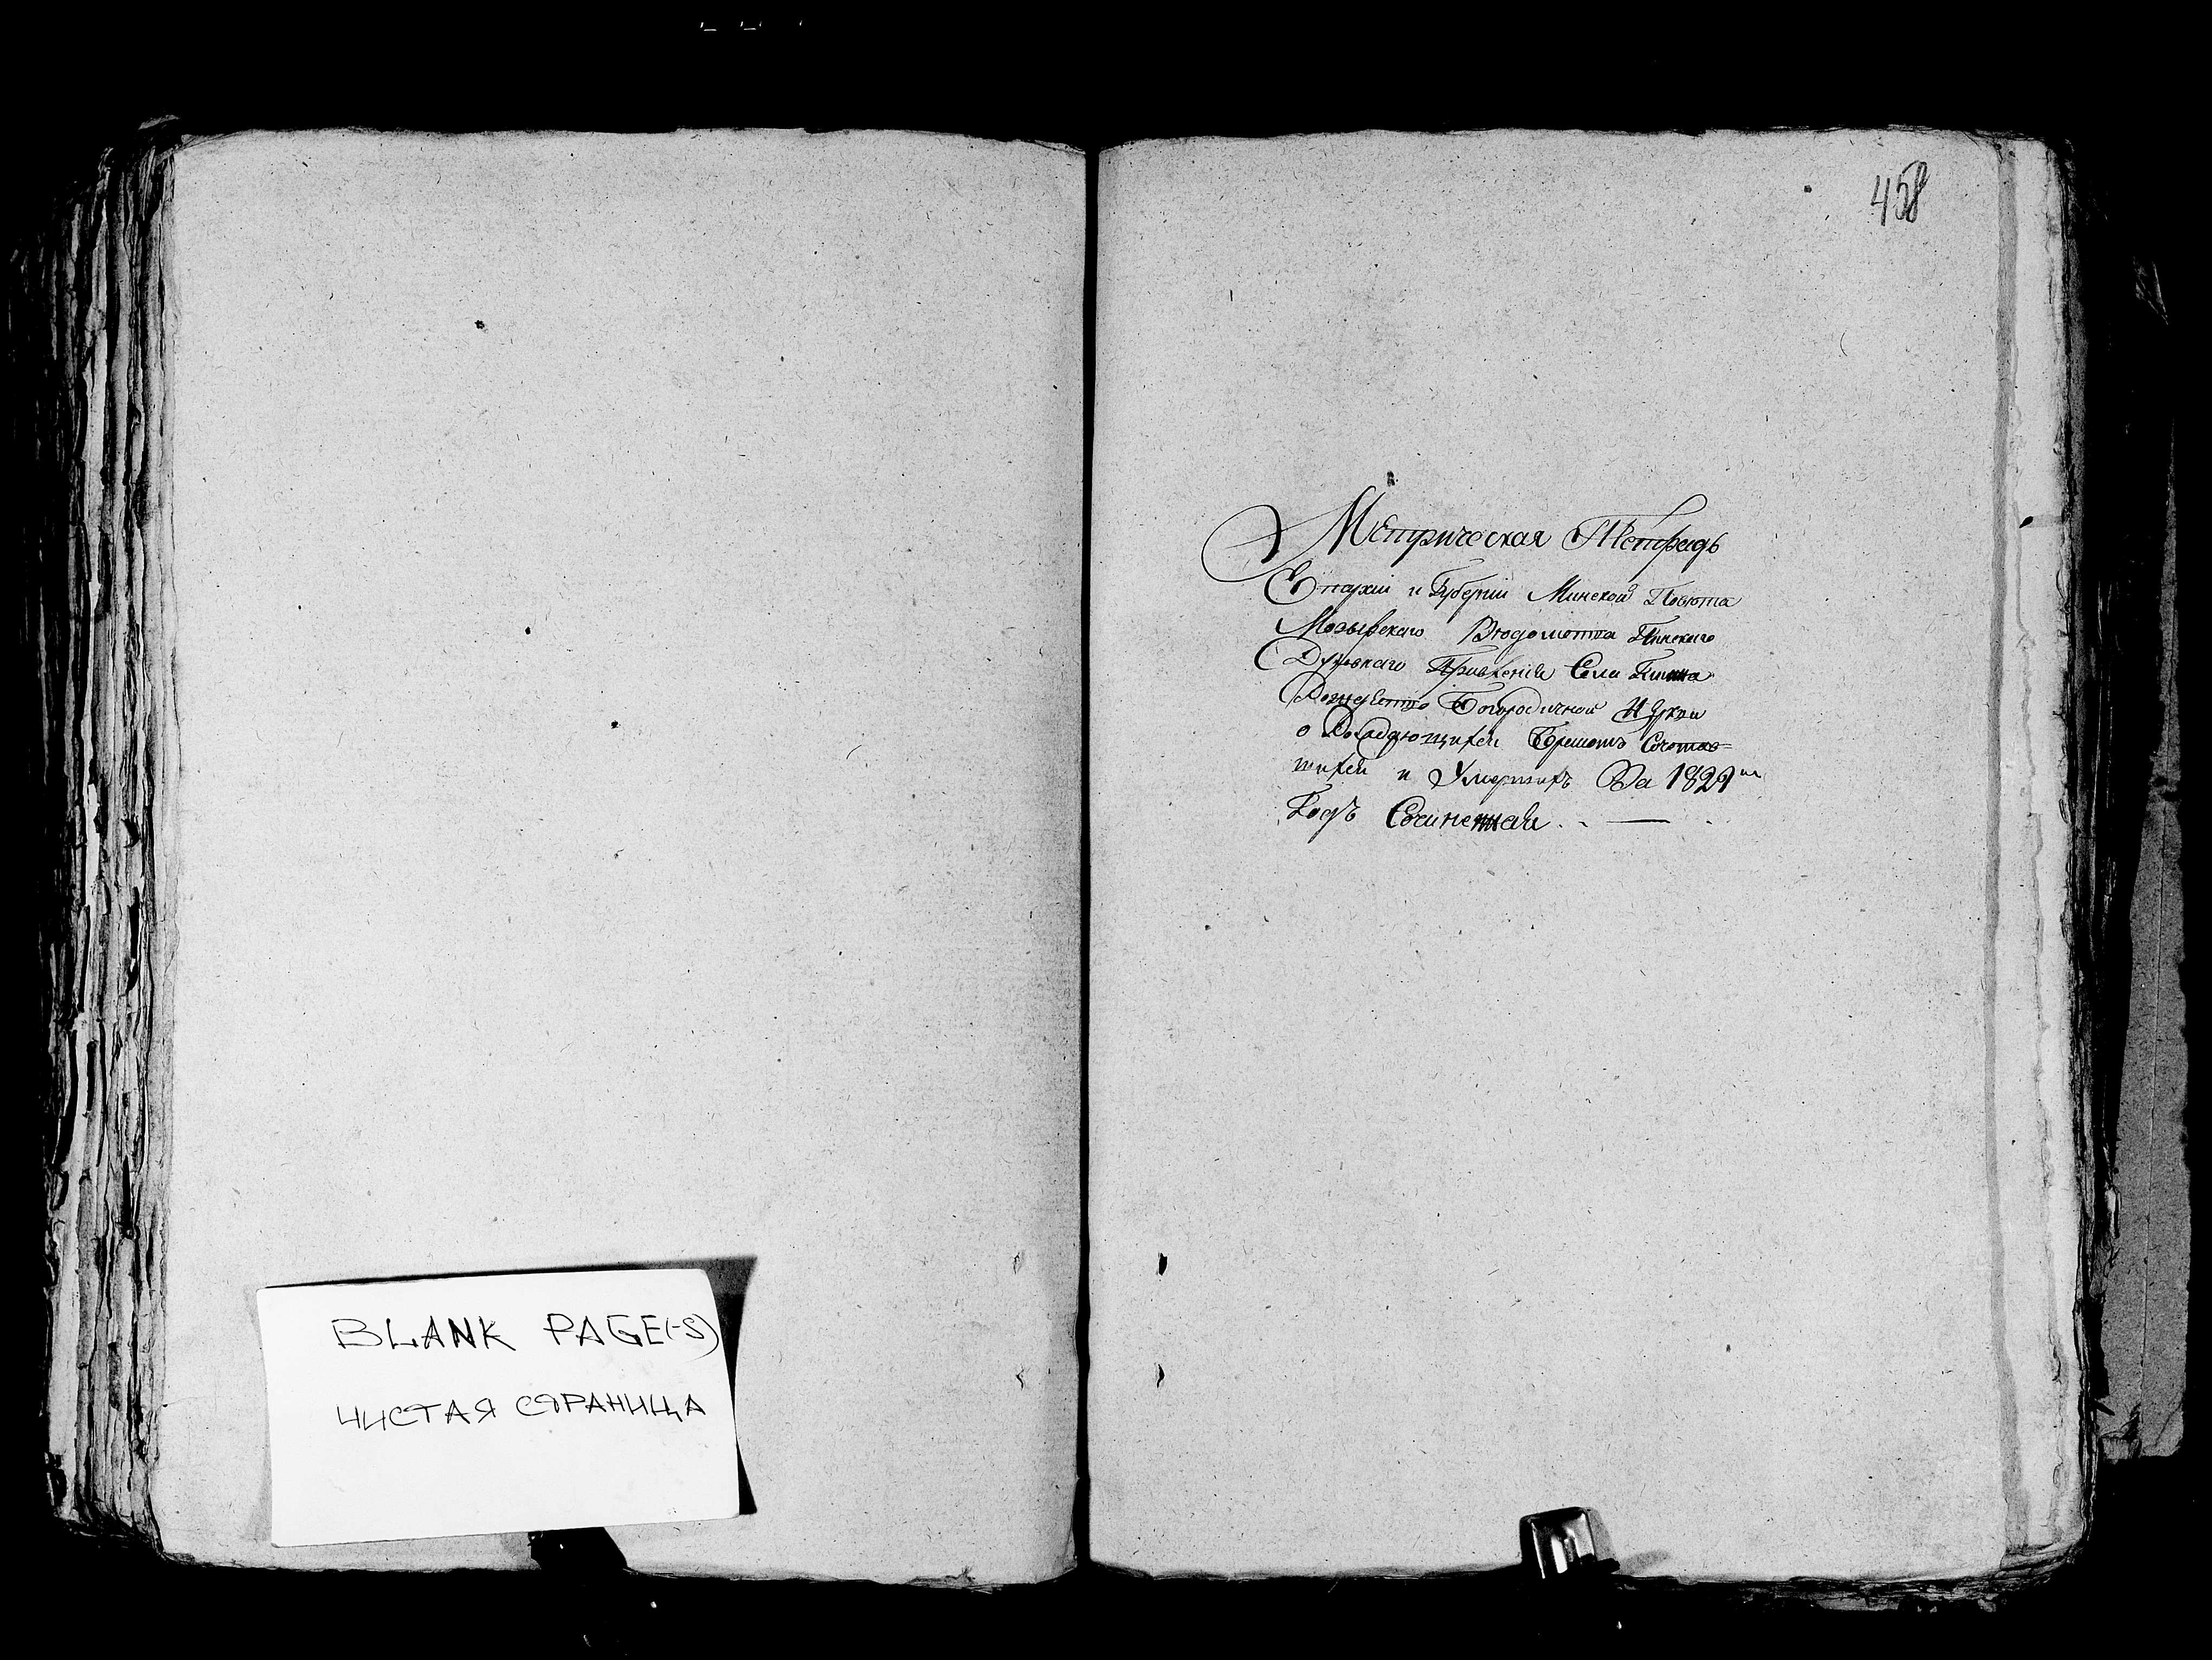 BLANK PAGE(-S)
ЧИСТАЯ СТРАНИЦА
458
Метрическая Тетрадь
Епархіи и Губерніи Минской Повѣта
Мозырскаго Вѣдомства Пинскаго
Духовнаго Правленія Села
Рождество Богородичной Церкви
о Рождающихся Бракомъ Сочетав=
шихся и Умершихъ За 1829й
Годъ Сочиненная